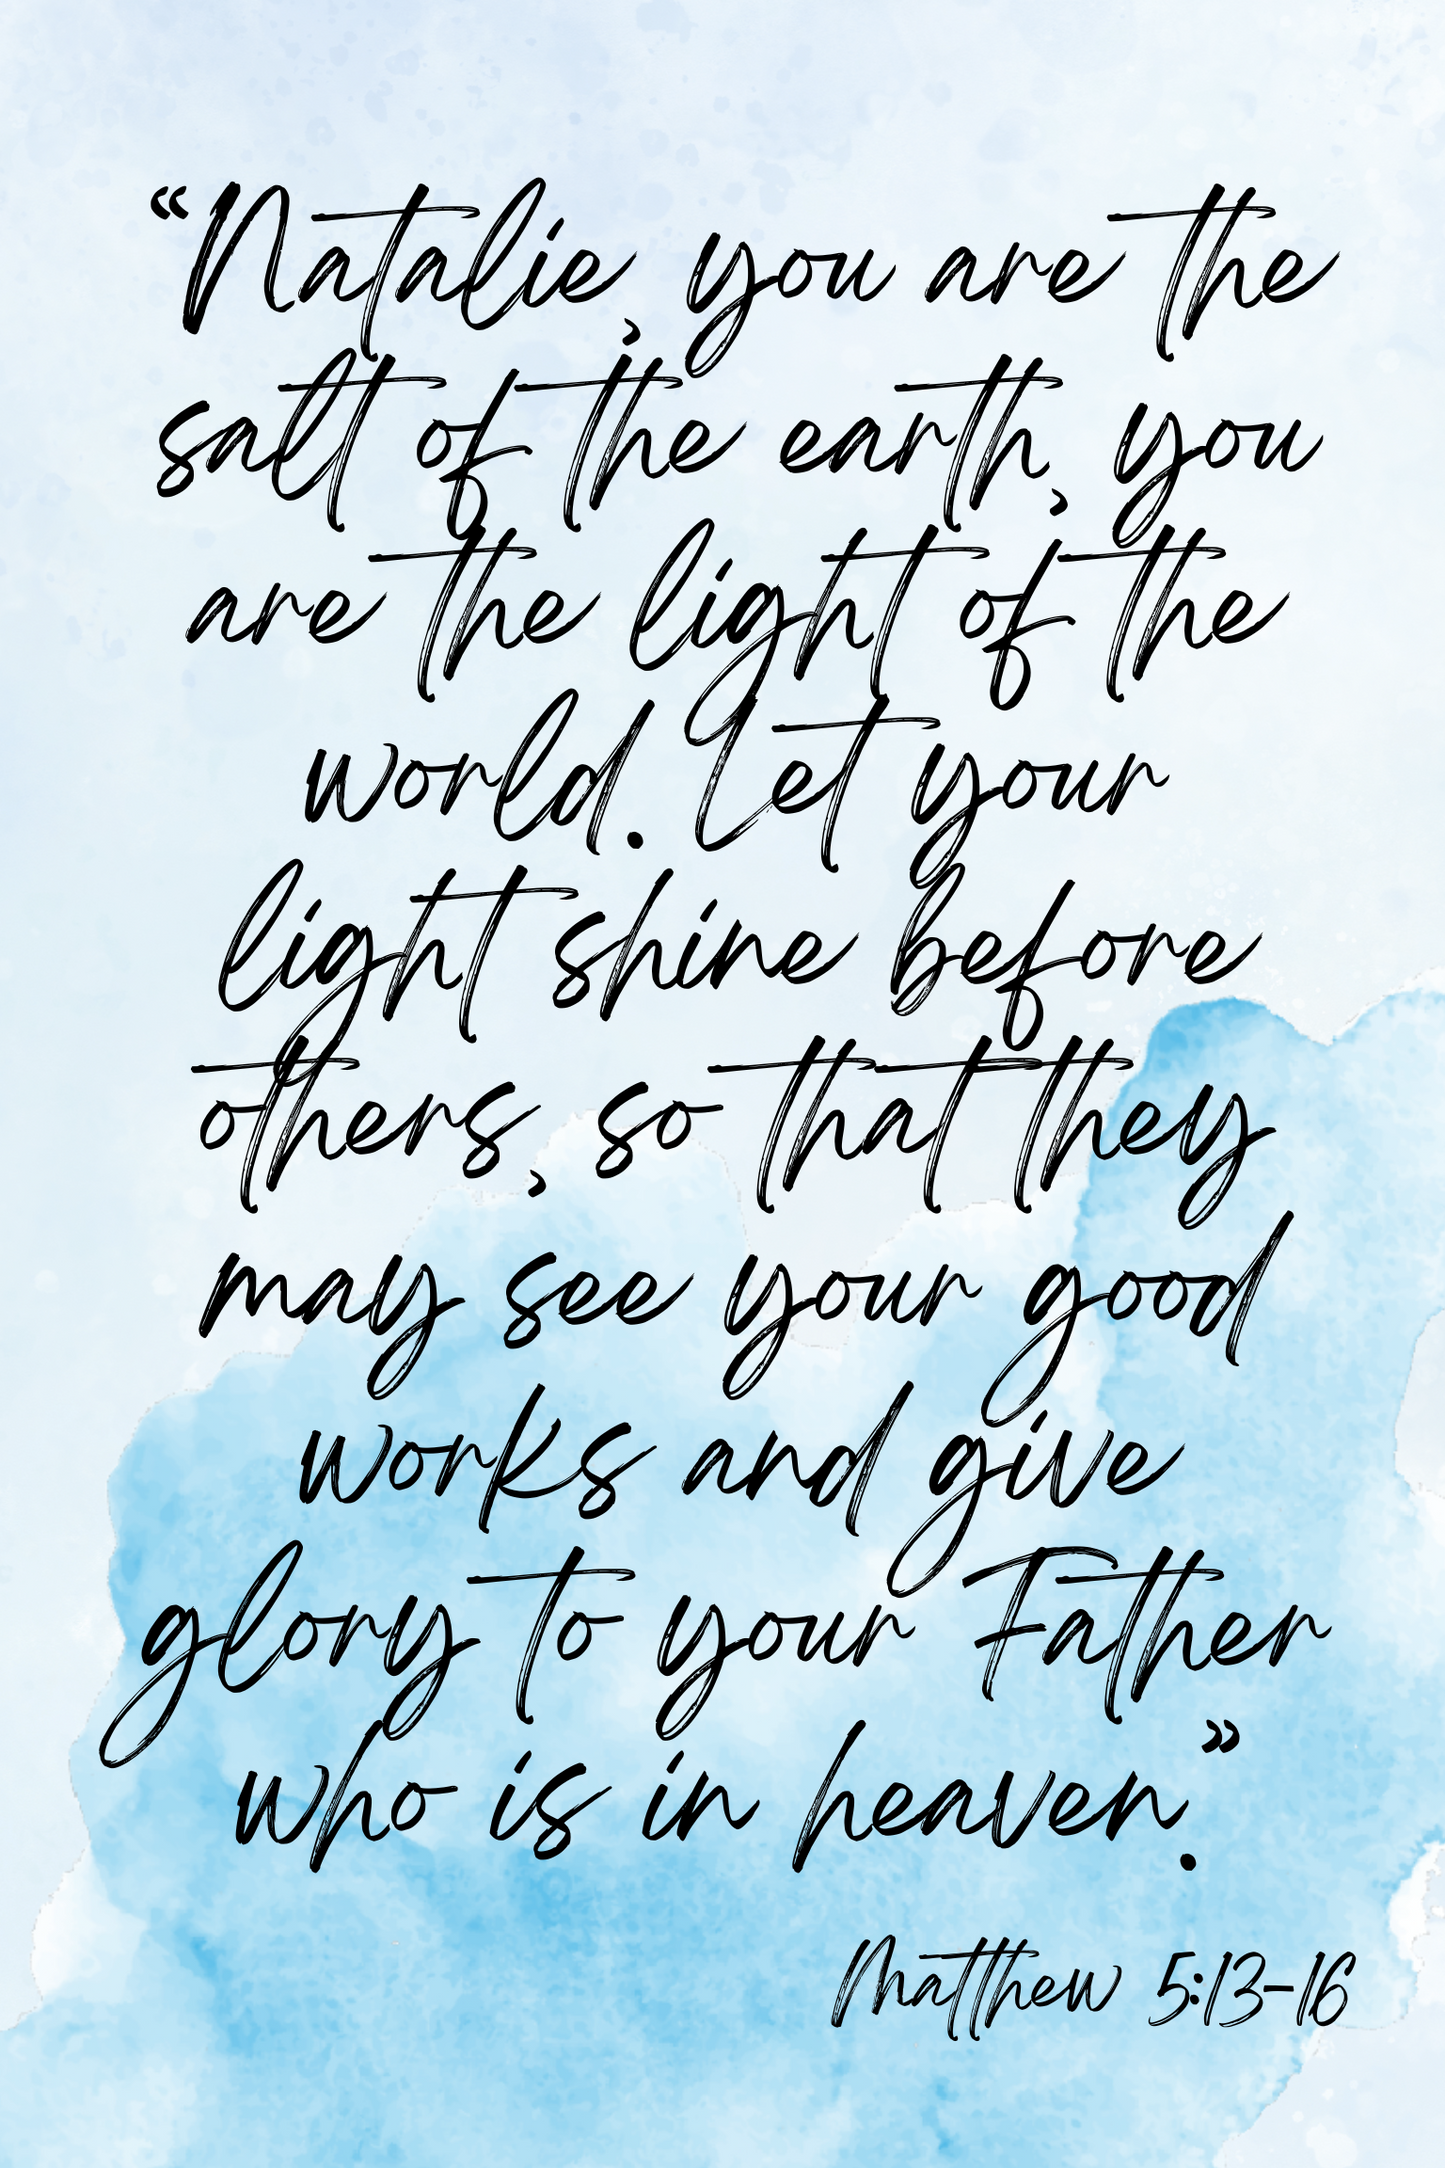 “Natalie, you are the
salt of the earth, you
are the light of the
world. Let your
light shine before
others, so that they
may see your good
works and give
glory to your Father
who is in heaven.”
Matthew 5:13-16